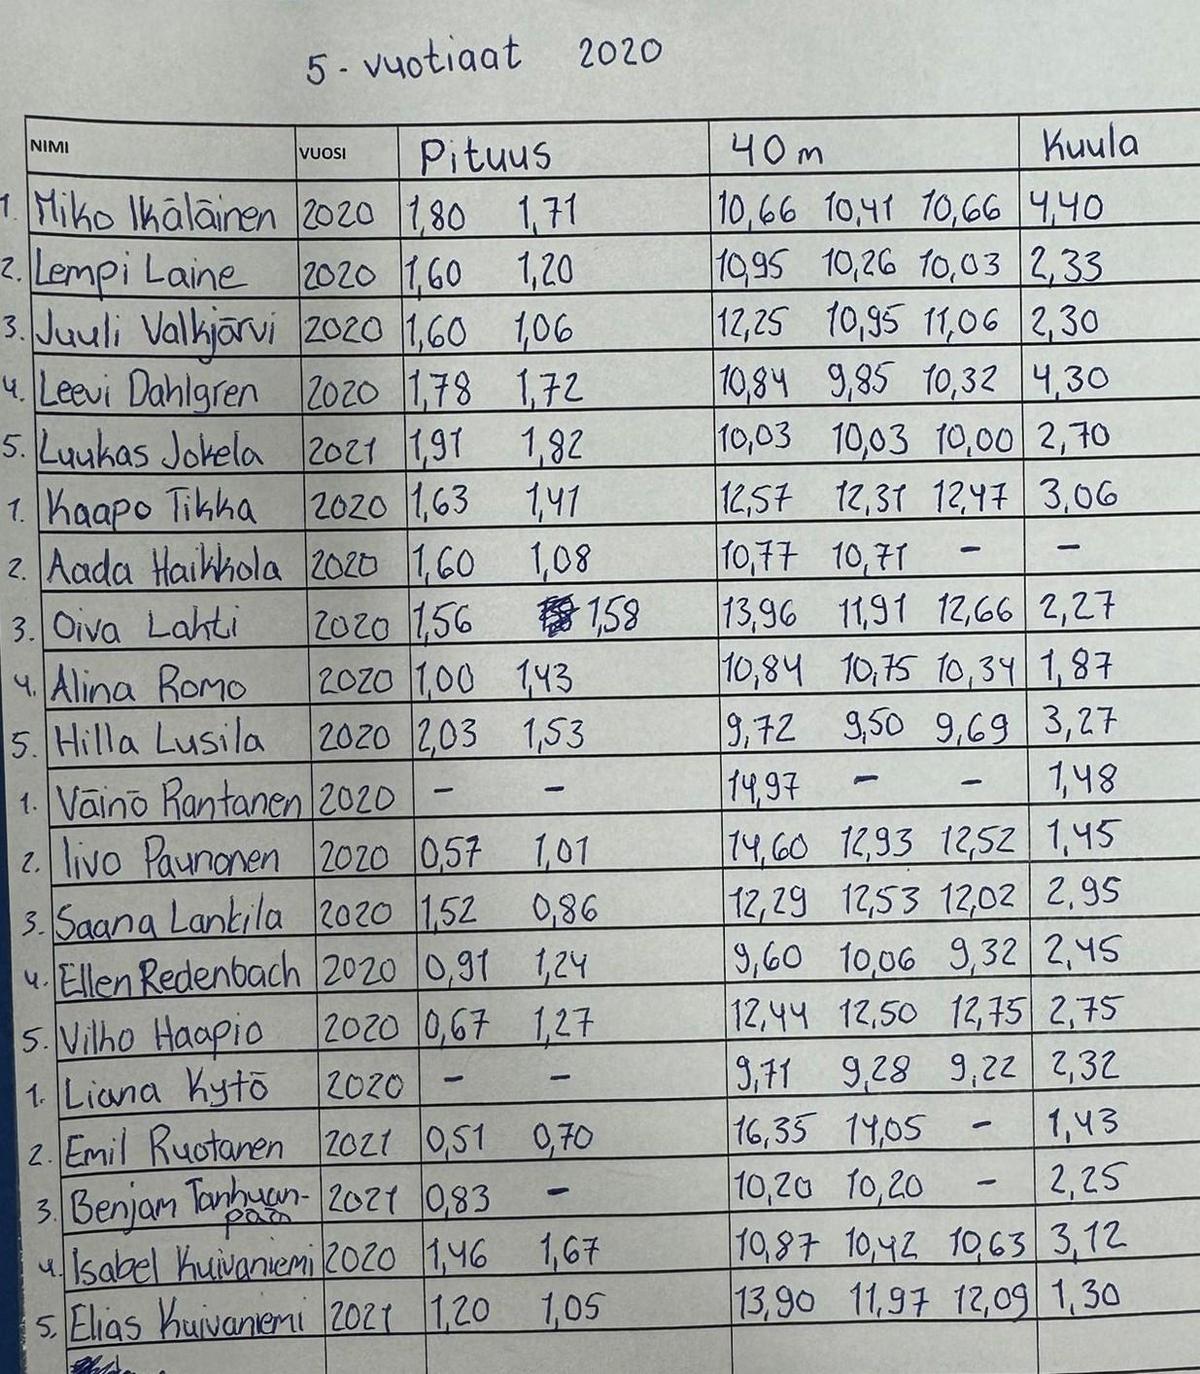 5-vuotiaat 2020
NIMI VUOSI Pituus 40m Kuula
1. Miko Ikäläinen 2020 1,80 1,71 10,66 10,41 10,66 4,40
2. Lempi Laine 2020 1,60 1,20 10,95 10,26 10,03 2,33
3. Juuli Valkjärvi 2020 1,60 1,06 12,25 10,95 11,06 2,30
4. Leevi Dahlgren 2020 1,78 1,72 10,84 9,85 10,32 4,30
5. Luukas Jokela 2021 1,91 1,82 10,03 10,03 10,00 2,70
1. Kaapo Tikka 2020 1,63 1,41 12,57 12,31 12,47 3,06
2. Aada Haikkola 2020 1,60 1,08 10,77 10,71 - -
3. Oiva Lahti 2020 1,56 1,58 13,96 11,91 12,66 2,27
4. Alina Romo 2020 1,00 1,43 10,84 10,75 10,34 1,87
5. Hilla Lusila 2020 2,03 1,53 9,72 9,50 9,69 3,27
1. Väinö Rantanen 2020 - - 14,97 - - 1,48
2. Iivo Paunonen 2020 0,57 1,01 14,60 12,93 12,52 1,45
3. Saana Lankila 2020 1,52 0,86 12,29 12,53 12,02 2,95
4. Ellen Redenbach 2020 0,91 1,24 9,60 10,06 9,32 2,45
5. Vilho Haapio 2020 0,67 1,27 12,44 12,50 12,75 2,75
1. Liana Kytö 2020 - - 9,71 9,28 9,22 2,32
2. Emil Ruotanen 2021 0,51 0,70 16,35 14,05 - 1,43
3. Benjam Tanhuan- 2021 0,83 - 10,20 10,20 - 2,25
pää
4. Isabel Kuivaniemi 2020 1,46 1,67 10,87 10,42 10,63 3,12
5. Elias Kuivaniemi 2021 1,20 1,05 13,90 11,97 12,09 1,30